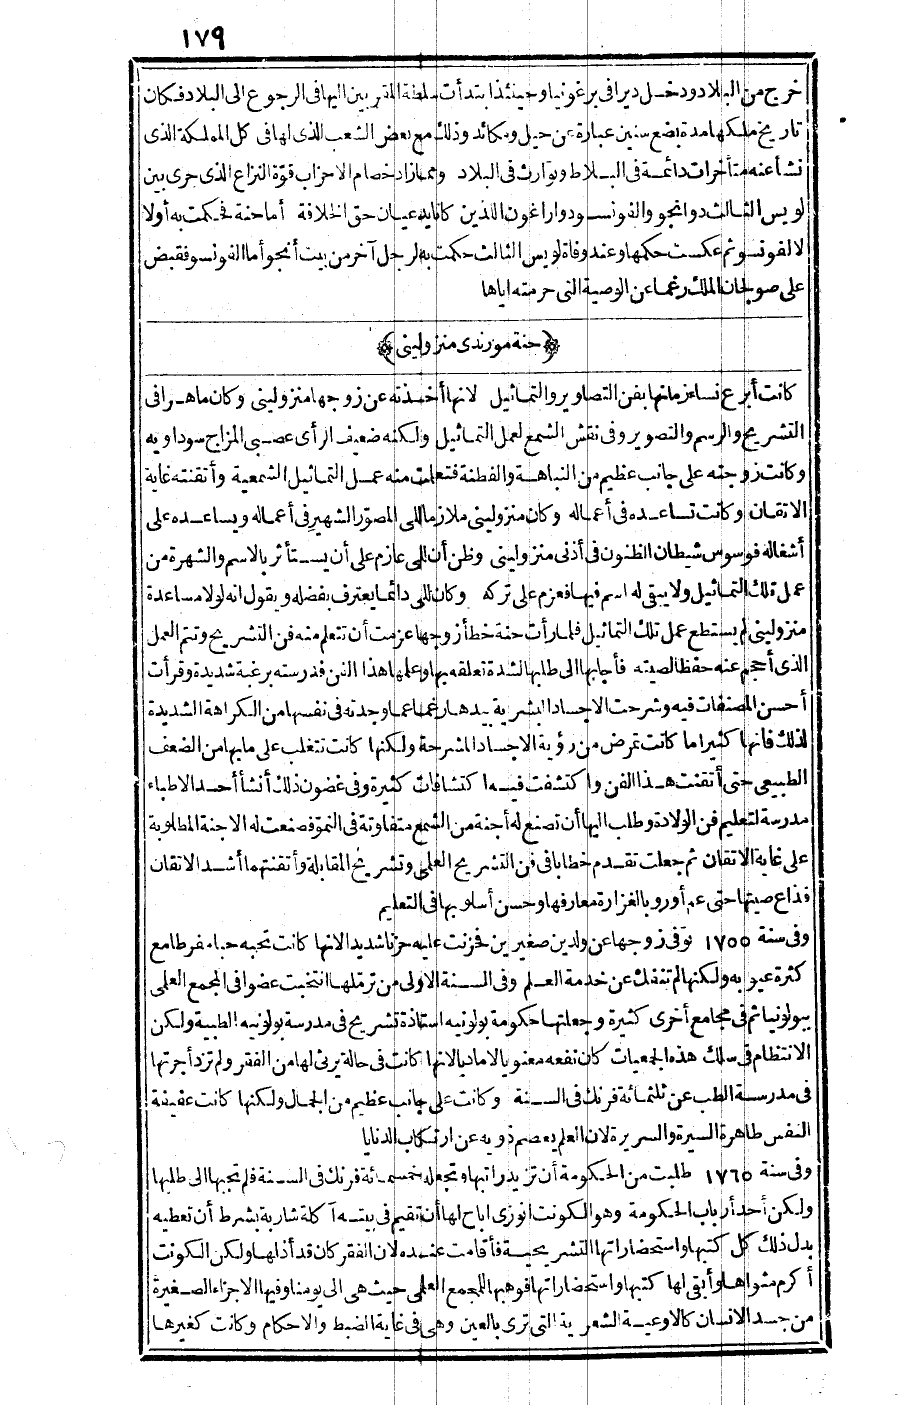 ١٧٩
خرج من البلاد ودخل ديرا فى برغونيا وحينئذ ابتدأت سلطة المقربين اليها فى الرجوع الى البلاد فكان
تاريخ ملكها مدة بضع سنين عبارة عن حيل ومكائد وذلك مع بعض الشعب الذى لها فى كل المملكة الذى
نشأ عنه متأخرات دائمة فى البلاط وثوارث فى البلاد ومما زاد خصام الاحزاب قوّة النزاع الذى جرى بين
لويس الثالث دوانجو والفونسو دواراغون اللذين كانا يدعيان حق الخلافة أما حنة فحكمت به أولا
لالفونسو ثم عكست حكمها وعند وفاة لويس الثالث حكمت به لرجل آخر من بيت أنجو أما الفونسو فقبض
على صولجان الملك رغما عن الوصية التى حرمته اياها
﴿حنة موراندى منزولينى﴾
كانت أبرع نساء زمانها بفن التصاوير والتماثيل لانها أخذته عن زوجها منزولينى وكان ماهرا فى
التشريح والرسم والتصوير وفى نقش الشمع لعمل التماثيل ولكنه ضعيف الرأى عصبى المزاج سوداويه
وكانت زوجته على جانب عظيم من النباهة والفطنة فتعلمت منه عمل التماثيل الشمعية وأتقنته غاية
الاتقان وكانت تساعده فى أعماله وكان منزولينى ملازما للى المصوّر الشهير فى أعماله ويساعده على
أشغاله فوسوس شيطان الظنون فى أذنى منزولينى وظن أن للى عازم على أن يستأثر بالاسم والشهرة من
عمل تلك التماثيل ولا يبقى له اسم فيها فعزم على تركه وكان للى دائما يعترف بفضله ويقول انه لولا مساعدة
منزولينى لم يستطع عمل تلك التماثيل فلما رأت حنة خطأ زوجها عزمت أن تتعلم منه فن التشريح وتتم العمل
الذى أحجم عنه حفظا لصيته فأجابها الى طلبها لشدة تعلقه بها وعلمها هذا الفن فدرسته برغبة شديدة وقرأت
أحسن المصنفات فيه وشرحت الاجساد البشرية بيدها رغما عما وجدته فى نفسها من الكراهة الشديدة
لذلك فانها كثيرا ما كانت تمرض من رؤية الاجساد المشرحة ولكنها كانت تتغلب على ما بها من الضعف
الطبيعى حتى أتقنت هذا الفن واكتشفت فيه اكتشافات كثيرة وفى غضون ذلك أنشأ أحد الاطباء
مدرسة لتعليم فن الولادة وطلب اليها أن تصنع له أجنة من الشمع متفاوتة فى النمو فصنعت له الاجنة المطلوبة
على غاية الاتقان ثم جعلت تقدم خطابا فى فن التشريح العلمى وتشريح المقابلة وأتقنتهما أشد الاتقان
فذاع صيتها حتى عم أوروبا لغزارة معارفها وحسن أسلوبها فى التعليم
وفى سنة ١٧٥٥ توفى زوجها عن ولدين صغيرين فحزنت عليه حزنا شديدا لانها كانت تحبه حبا مفرطا مع
كثرة عيوبه ولكنها لم تنفك عن خدمة العلم وفى السنة الاولى من ترملها انتخبت عضوا فى المجمع العلمى
ببولونيا ثم فى مجامع أخرى كثيرة وجعلتها حكومة بولونيه استاذة تشريح فى مدرسة بولونيه الطبية ولكن
الانتظام فى سلك هذه الجمعيات كان نفعه معنويا لا ماديا لانها كانت فى حالة يرثى لها من الفقر ولم تزد أجرتها
فى مدرسة الطب عن ثلثمائة فرنك فى السنة وكانت على جانب عظيم من الجمال ولكنها كانت عفيفة
النفس طاهرة السيرة والسريرة لان العلم يعصم ذويه عن ارتكاب الدنايا
وفى سنة ١٧٦٥ طلبت من الحكومة أن تزيد راتبها وتجعله خمسمائة فرنك فى السنة فلم تجبها الى طلبها
ولكن أحد أرباب الحكومة وهو الكونت انوزى اباح لها أن تقيم فى بيته آكلة شاربة بشرط أن تعطيه
بدل ذلك كل كتبها واستحضاراتها التشريحية فأقامت عنده لان الفقر كان قد أذلها ولكن الكونت
أكرم مثواها وأبقى لها كتبها واستحضاراتها فوهبها للمجمع العلمى حيث هى الى يومنا وفيها الاجزاء الصغيرة
من جسد الانسان كالاوعية الشعرية التى ترى بالعين وهى فى غاية الضبط والاحكام وكانت كغيرها